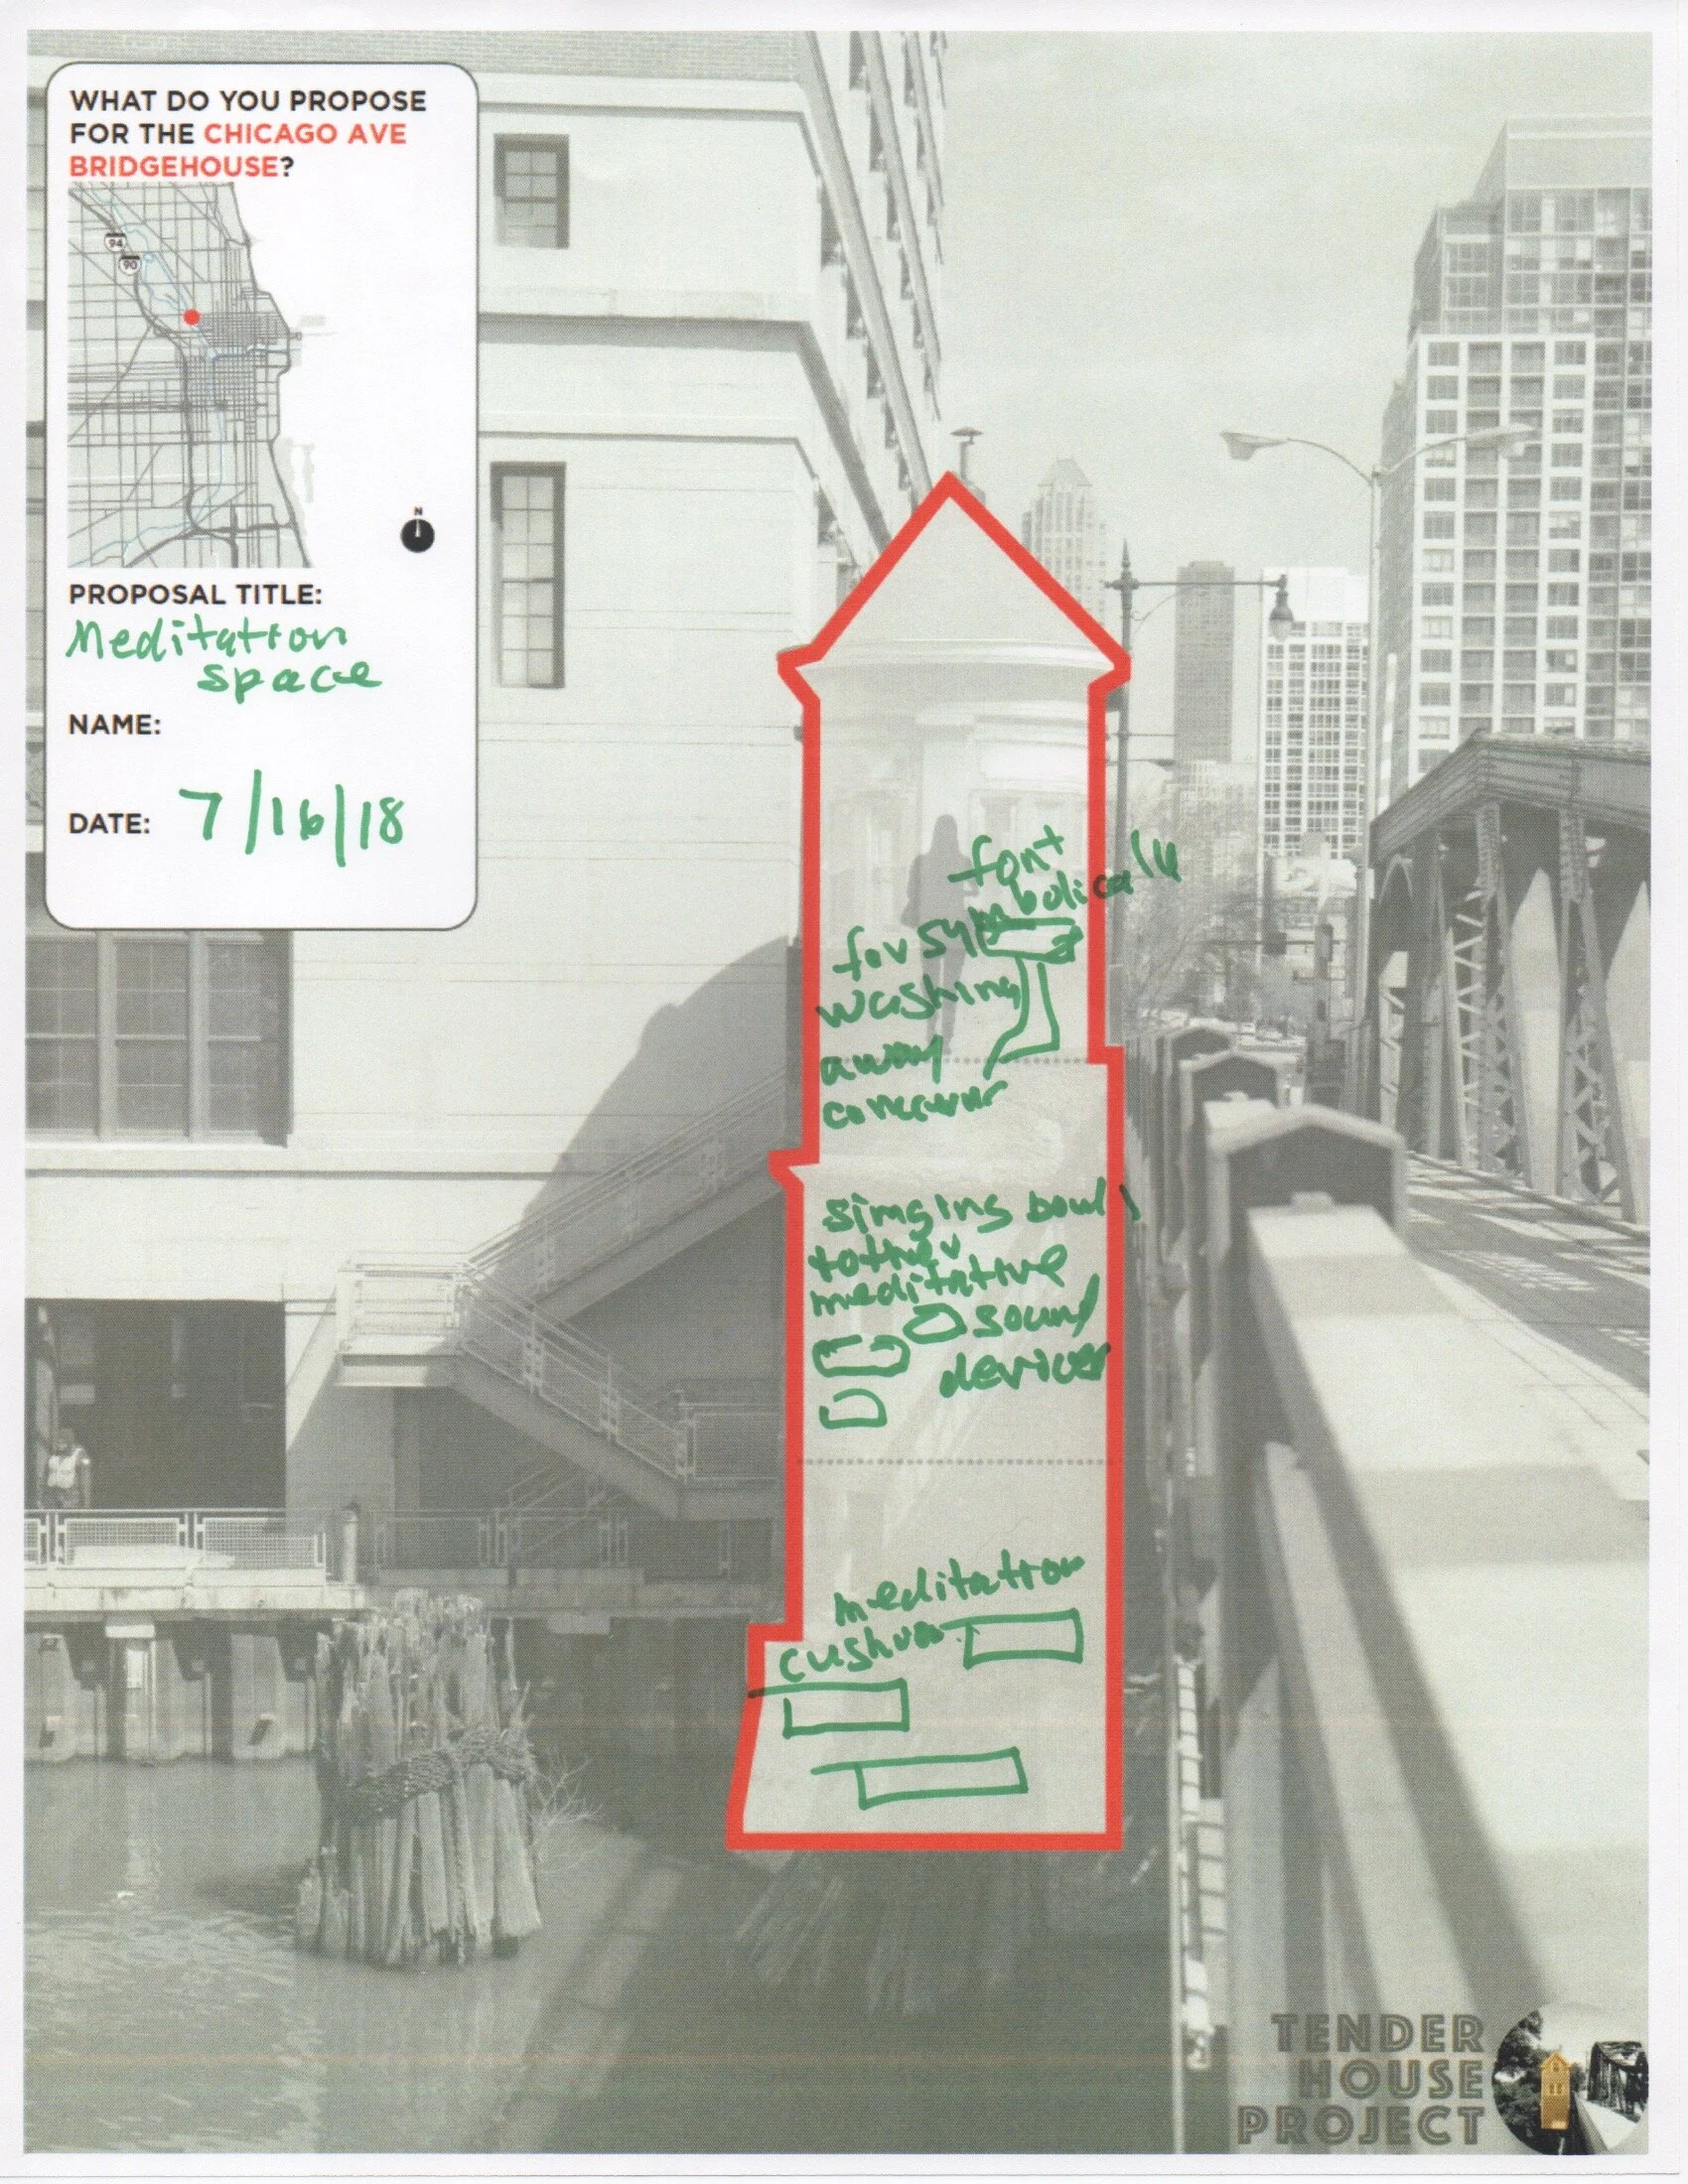 WHAT DO YOU PROPOSE
FOR THE CHICAGO AVE
BRIDGEHOUSE?
94
90
N
PROPOSAL TITLE:
Meditation
space
NAME:
DATE: 7/16/18
font
for symbolically
washing
away
singing bowls
meditative
sound
devices
meditation
TENDER
HOUSE
PROJECT